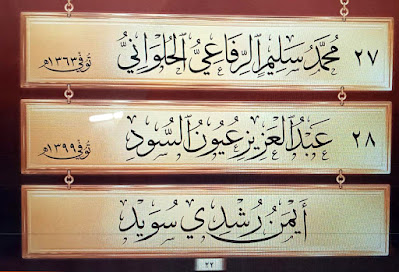 ٢٧ مُحَمَّدُ سَلِيمٍ الرِّفَاعِيُّ الحُلْوَانِيُّ تُوُفِّيَ ١٣٦٣هـ
٢٨ عَبْدُ العَزِيزِ عُيُونُ السُّودِ تُوُفِّيَ ١٣٩٩هـ
أَيْمَنُ رُشْدِي سُوَيْد
٢٢